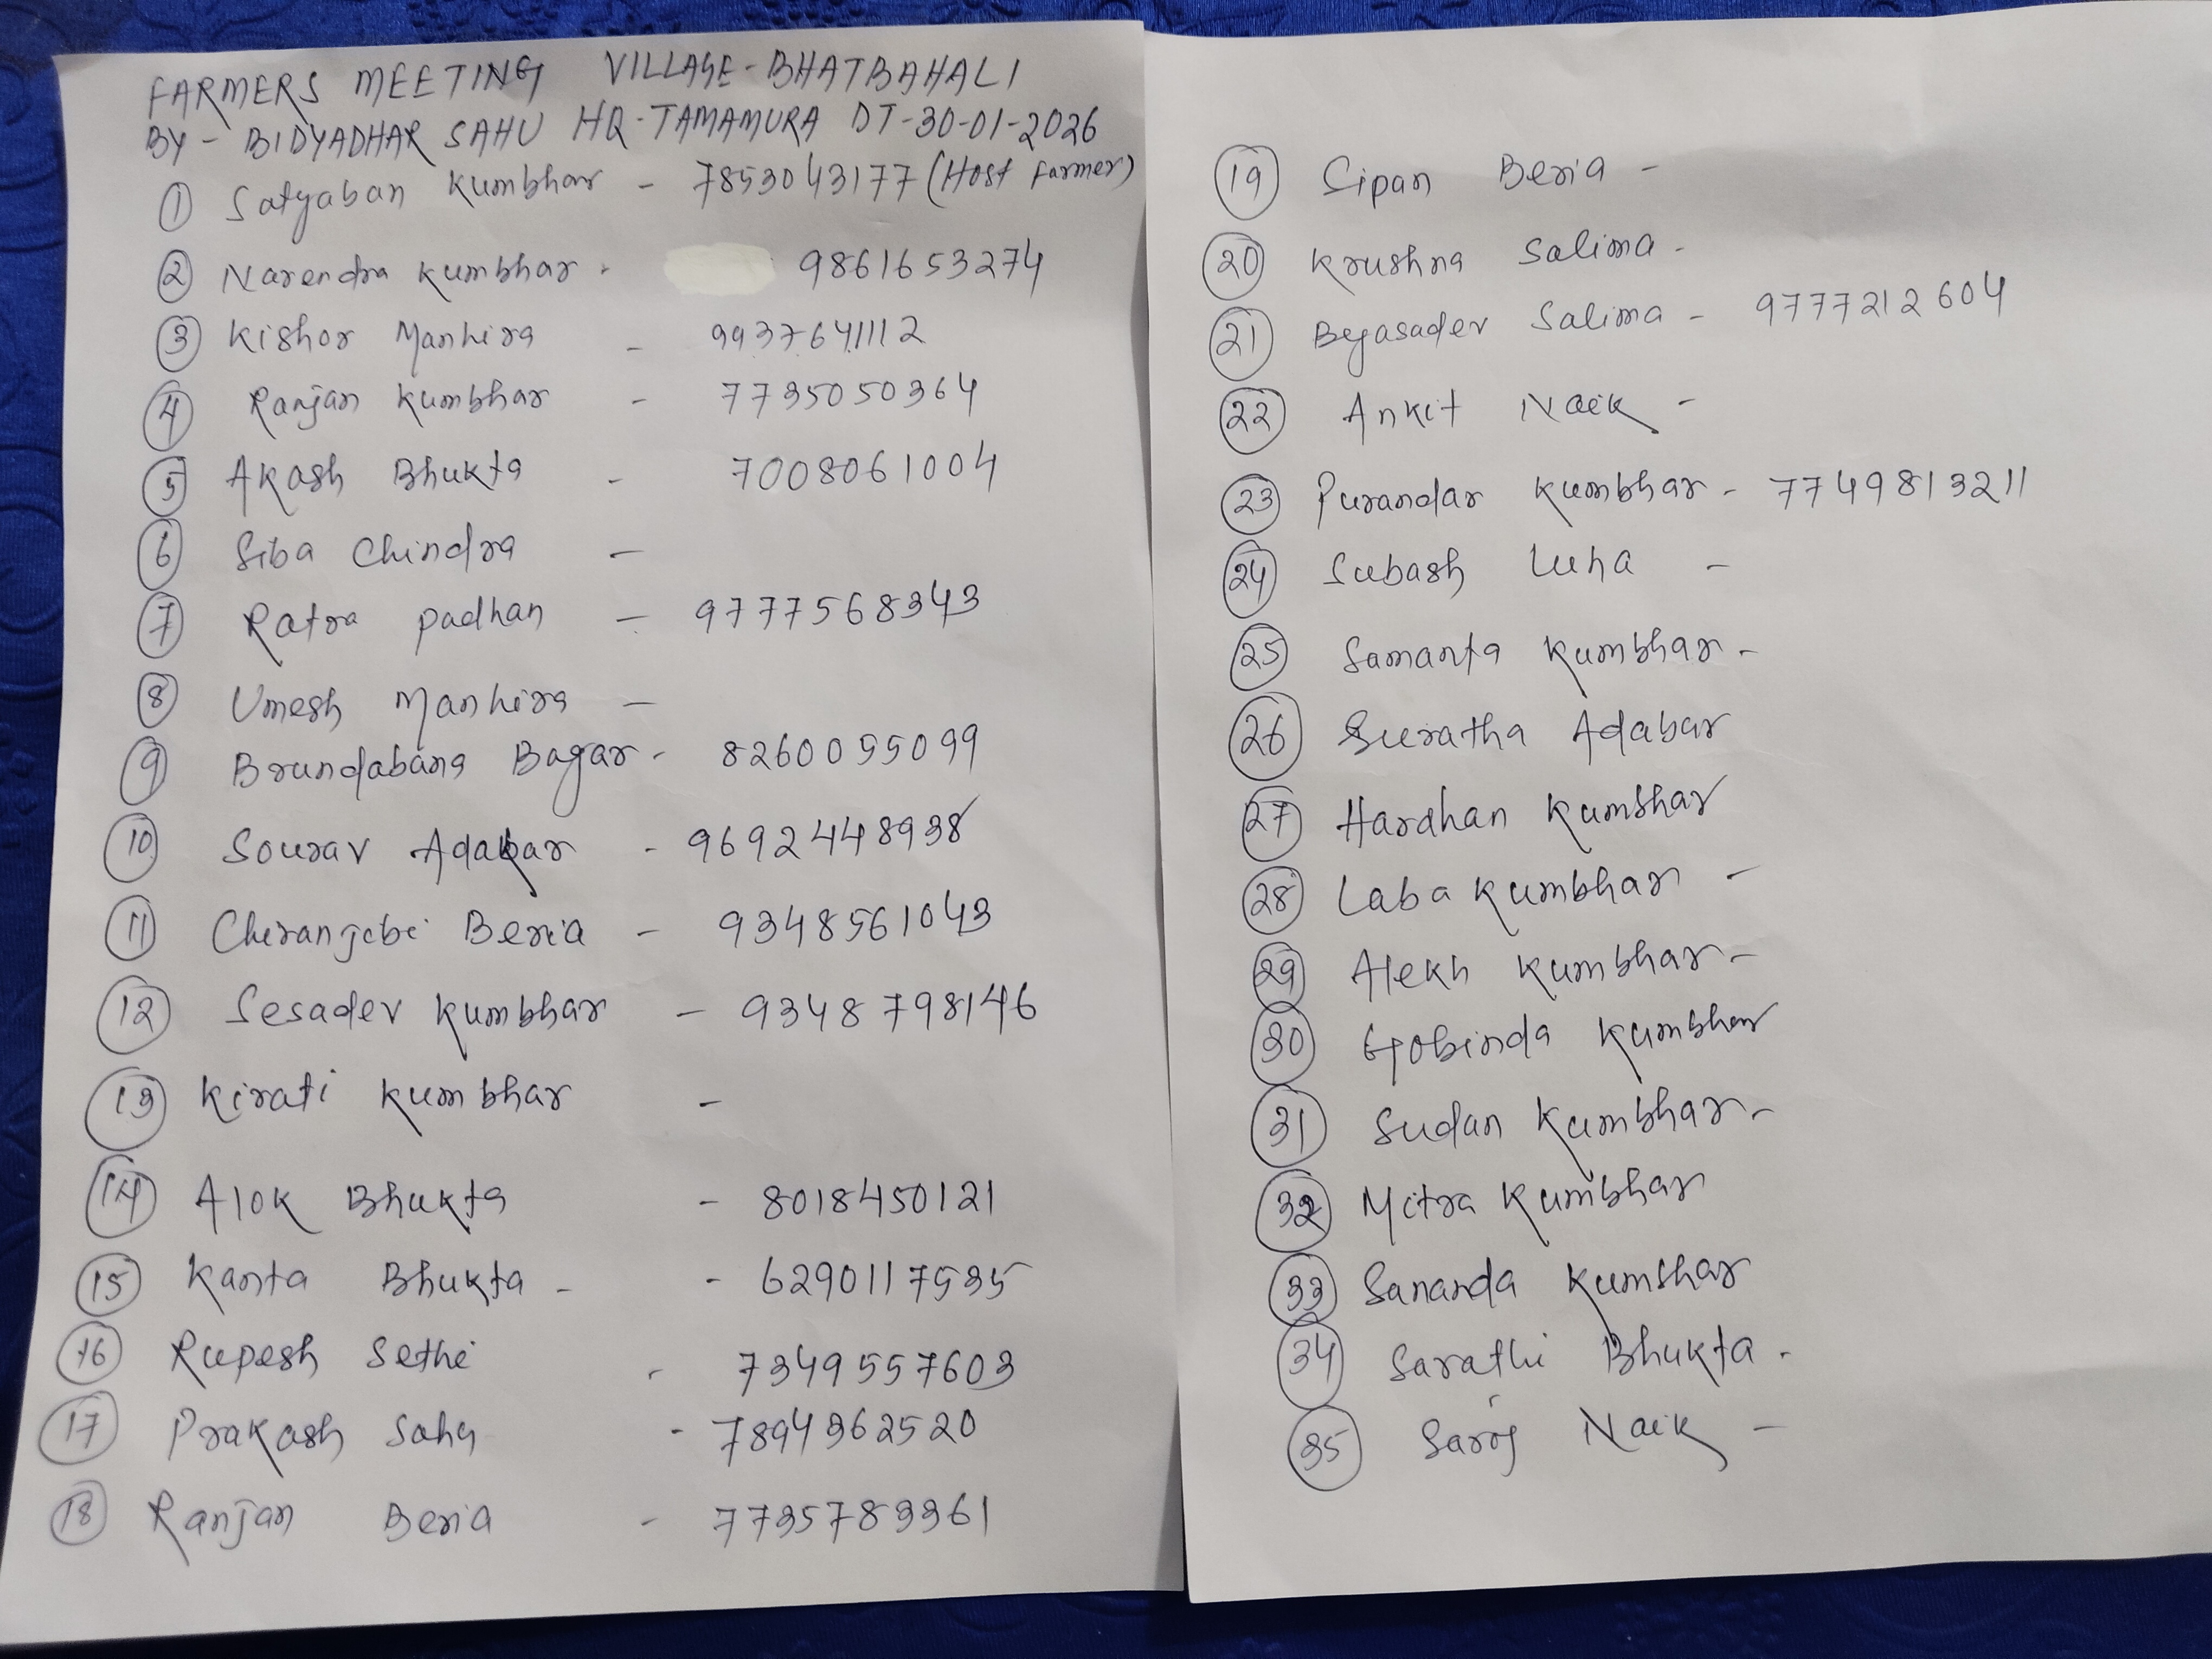 FARMERS MEETING VILLAGE-BHATBAHALI
BY - BIDYADHAR SAHU HQ-TAMAMURA DT-30-01-2026
1 Satyaban Kumbhar - 7853043177 (Host farmer)
2 Narendra Kumbhar - 9861653274
3 Kishor Manhira - 9937641112
4 Ranjan Kumbhar - 7735050364
5 Akash Bhukta - 7008061004
6 Siba Chindra -
7 Ratra Padhan - 9777568343
8 Umesh Manhira -
9 Brundabana Bagar - 8260055099
10 Sourav Adabar - 9692448938
11 Chiranjibi Beria - 9348561043
12 Sesadev Kumbhar - 9348798146
13 Kirati Kumbhar -
14 Alok Bhukta - 8018450121
15 Kanta Bhukta - - 6290117535
16 Rupesh Sethi - 7349557603
17 Prakash Sahu - 7894362520
18 Ranjan Beria - 7735783361
19 Sipan Beria -
20 Krushna Salima -
21 Byasadev Salima - 9777212604
22 Ankit Naik -
23 Purandar Kumbhar - 7749813211
24 Subash Luha -
25 Samanta Kumbhar -
26 Suratha Adabar
27 Hardhan Kumbhar
28 Laba Kumbhar -
29 Alekh Kumbhar -
30 Gobinda Kumbhar
31 Sudan Kumbhar -
32 Mitra Kumbhar
33 Sananda Kumbhar
34 Sarathi Bhukta -
35 Saroj Naik -